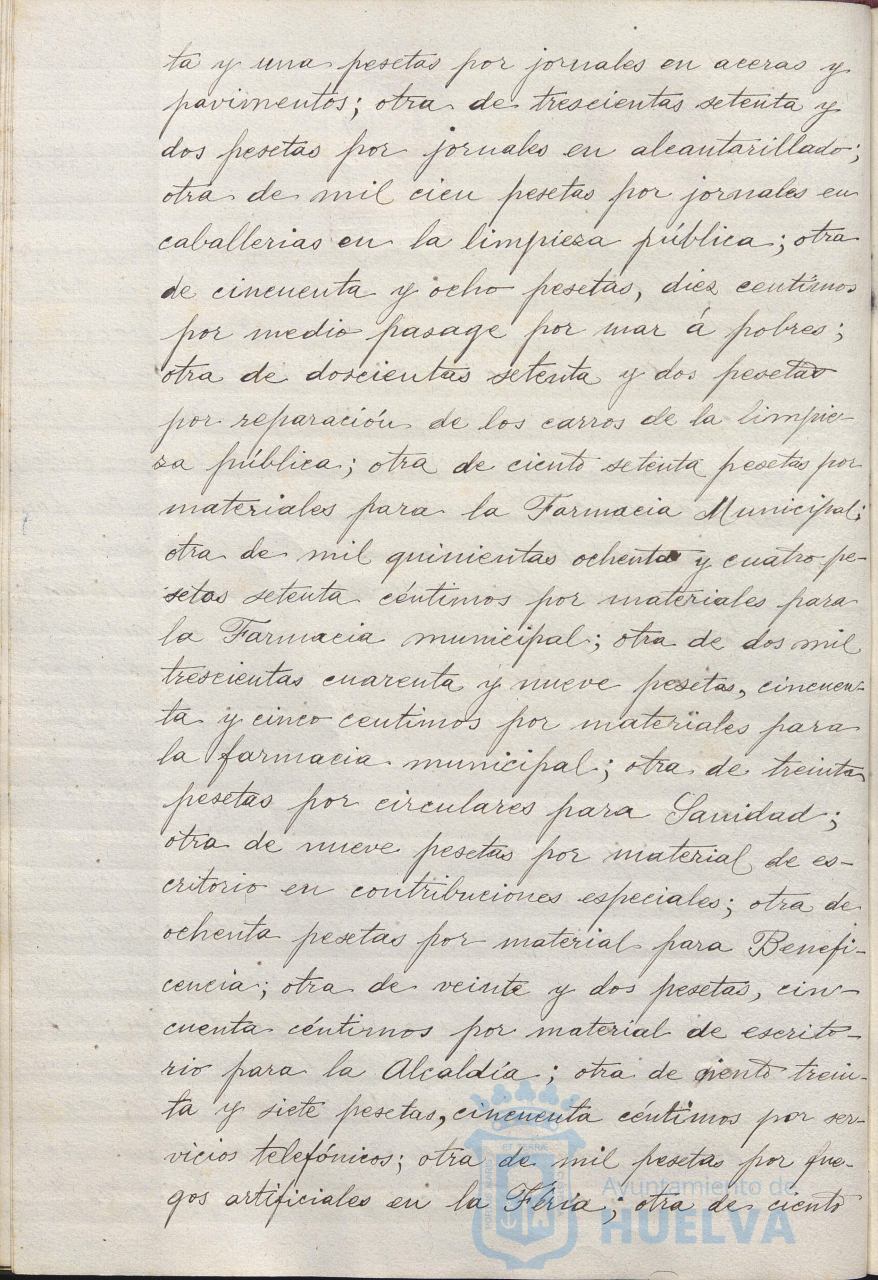 ta y una pesetas por jornales en aceras y
pavimentos; otra de trescientas setenta y
dos pesetas por jornales en alcantarillado;
otra de mil cien pesetas por jornales en
caballerias en la limpieza pública; otra
de cincuenta y ocho pesetas, diez centimos
por medio pasage por mar á pobres;
otra de doscientas setenta y dos pesetas
por reparación de los carros de la limpie-
za pública; otra de ciento setenta pesetas por
materiales para la Farmacia Municipal;
otra de mil quinientas ochenta y cuatro pe-
setas setenta céntimos por materiales para
la Farmacia municipal; otra de dos mil
trescientas cuarenta y nueve pesetas, cincuen-
ta y cinco centimos por materiales para
la farmacia municipal; otra de treinta
pesetas por circulares para Sanidad;
otra de nueve pesetas por material de es-
critorio en contribuciones especiales; otra de
ochenta pesetas por material para Benefi-
cencia; otra de veinte y dos pesetas, cin-
cuenta céntimos por material de escrito-
rio para la Alcaldía; otra de ciento trein-
ta y siete pesetas, cincuenta céntimos por ser-
vicios telefónicos; otra de mil pesetas por fue-
gos artificiales en la Féria; otra de ciento
Ayuntamiento de
HUELVA